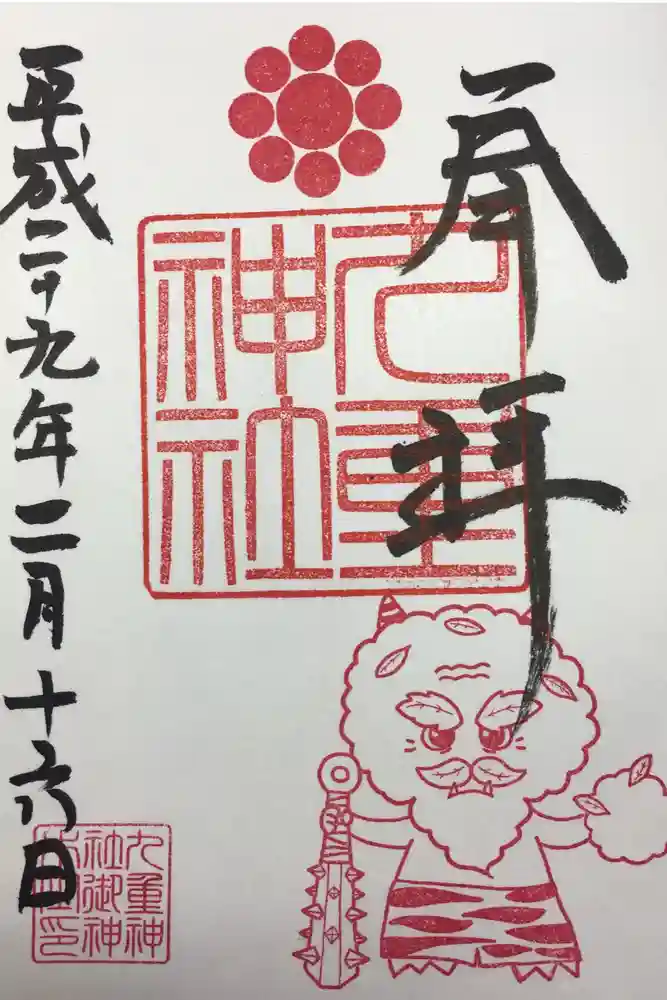 奉拝
九重
神社
平成二十九年二月十六日
九重神
社御神
印